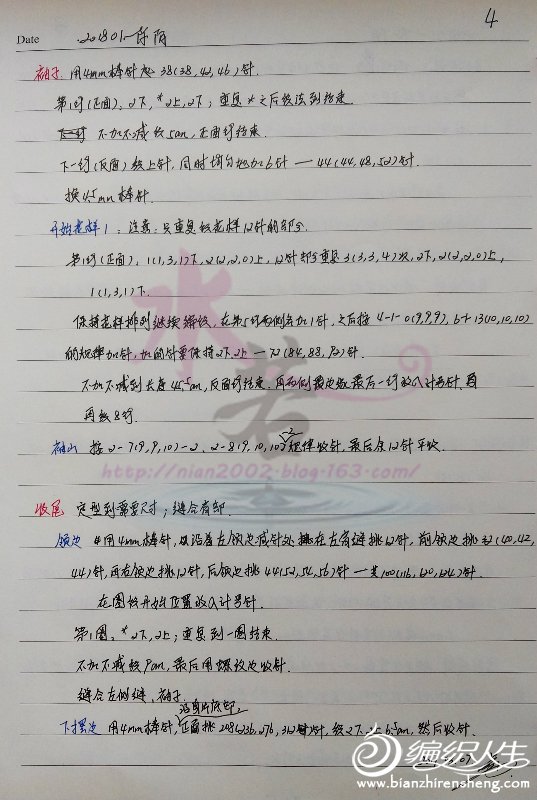 4
Date 201801-作2
袖子 用4mm棒针起38(38,42,46)针.
第1行(正面), 2下, *2上, 2下; 重复*之后织法到结束.
不加不减织5cm, 正面行结束.
下一行(反面)织上针, 同时均匀地加6针 — 44(44,48,52)针.
换4.5mm棒针.
开始花样1: 注意: 只重复织花样12针的部分.
第1行(正面), 1(1,3,1)下, 2(2,2,0)上, 12针部分重复3(3,3,4)次, 2下, 2(2,2,0)上,
1(1,3,1)下.
保持花样排列继续编织, 在第5行两侧各加1针, 之后按4-1-0(9,9,9), 6-1-13(10,10,10)
的规律加针, 加的针要保持2下2上 — 72(84,88,92)针.
不加不减到长度45.5cm, 反面行结束. 再两侧最边处最后一行放入计号针,
再织8行.
袖山 按2-7(9,9,10)-2, 2-8(9,10,10)-2规律收针, 最后余12针平收.
http://nian2002.blog.163.com/
水若
收尾 定型到需要尺寸; 缝合肩部.
领边 用4mm棒针, 沿着左领边减针处挑在左肩缝挑12针, 前领边挑32(40,42,
44)针, 再右领边挑12针, 后领边挑44(52,54,56)针 — 共100(116,120,124)针.
在圈织开始位置放入计号针.
第1圈, *2下, 2上; 重复到一圈结束.
不加不减织9cm, 最后用螺纹边收针.
缝合左侧缝, 袖子.
沿身片底部,
下摆边 用4mm棒针, 正面挑208(236,276,312)针, 织2下2上6.5cm, 然后收针.
编织人生
www.bianzhirensheng.com